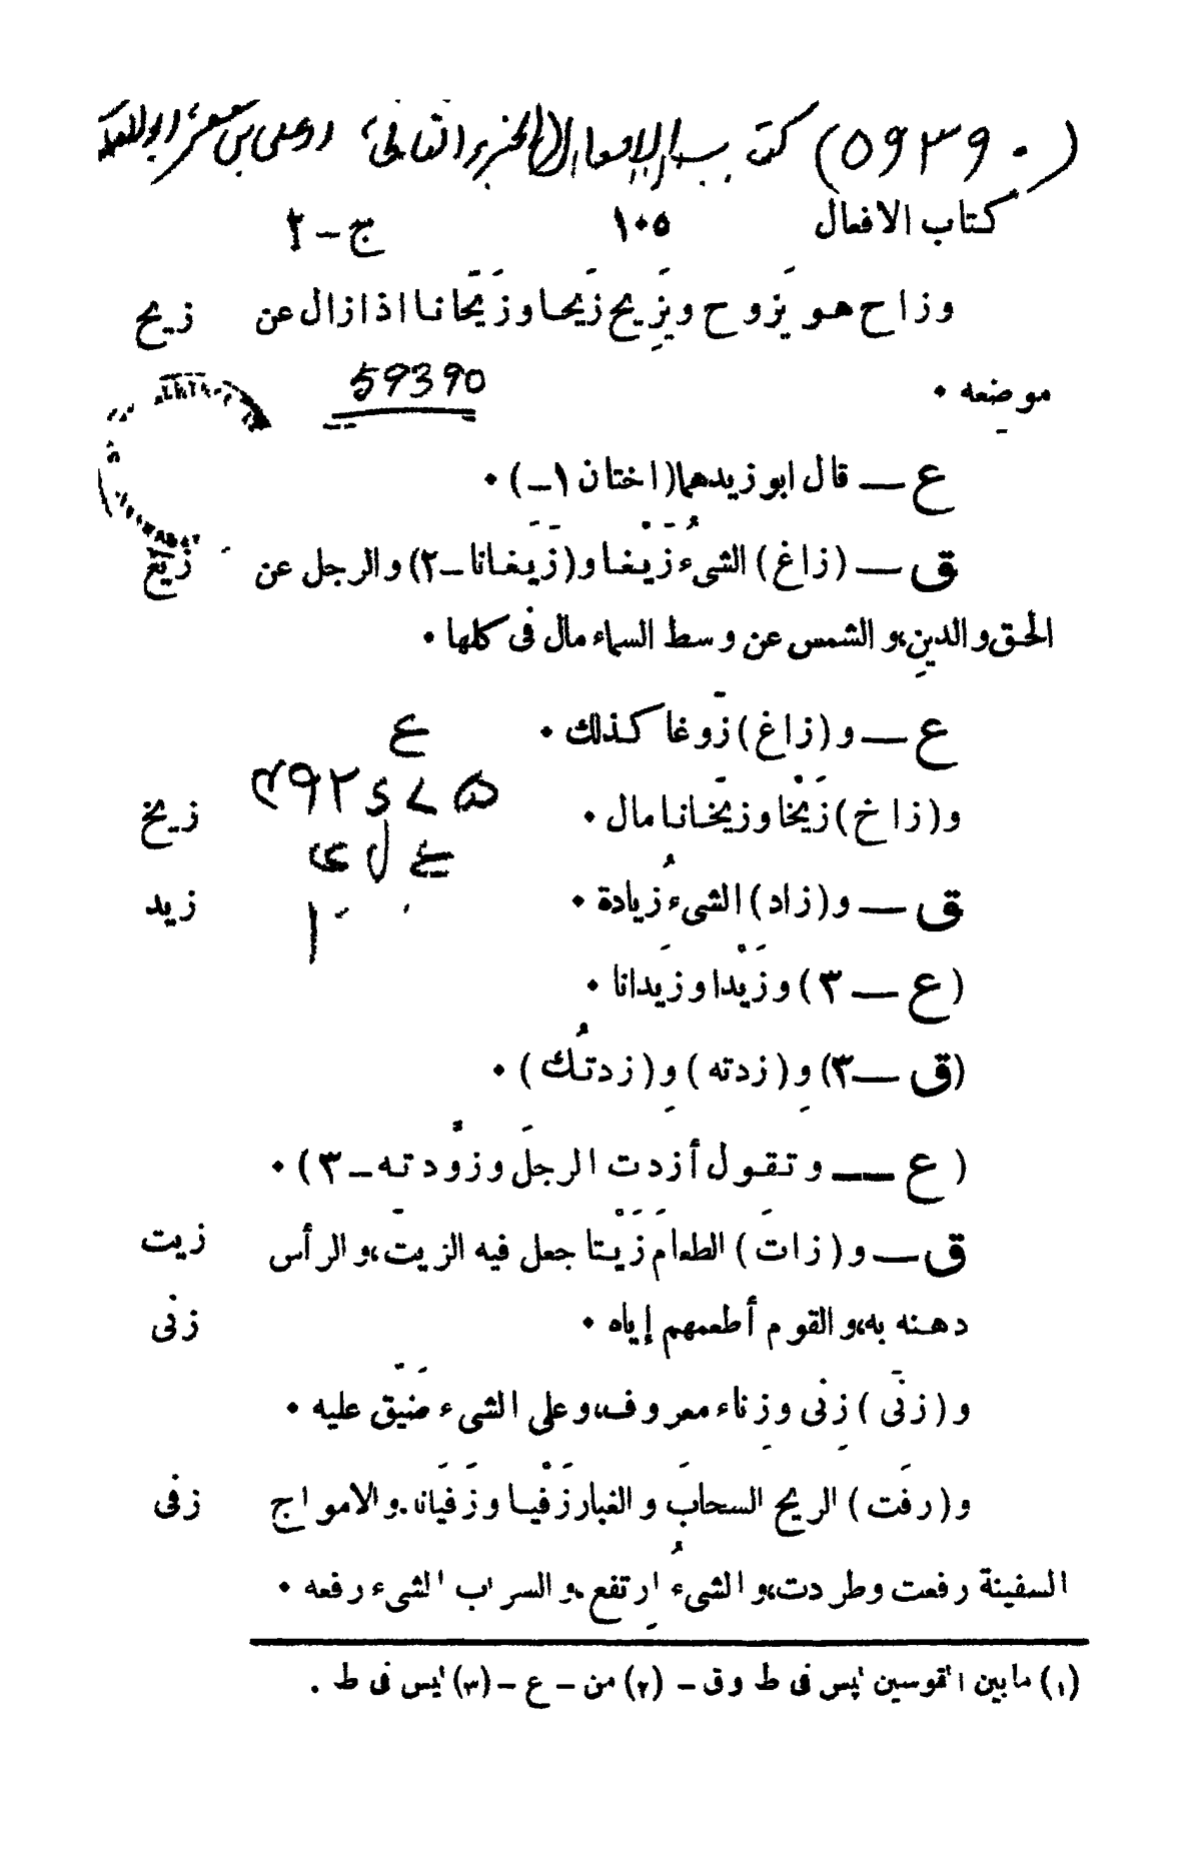 (٥٩٣٩٠) كتاب الافعال الجزء الثانى
كتاب الافعال ١٠٥ ج - ٢
وزاح هو يَزوح ويَزِيح زَيحا وزَيَحانا اذا زال عن زيح
موضِعه •
59390
ع — قال ابو زيد هما (اختان ١-) •
ق — (زاغ) الشىءُ زَيْغا و(زَيَغانا -٢) والرجل عن زيغ
الحق والدينِ، والشمس عن وسط السماء مال فى كلها •
ع — و(زاغ) زَوغا كذلك •
ع
و(زاخ) زَيْخا وزيَخانا مال • زيخ
ق — و(زاد) الشىءُ زيادة • زيد
(ع — ٣) وزَيْدا وزَيَدانا •
(ق — ٣) و(زِدته) و(زِدتُك) •
(ع — وتقول أزدت الرجلَ وزوَّدته - ٣) •
ق — و(زاتَ) الطعامَ زَيْتا جعل فيه الزيتَ، والرأس زيت
دهنه به، والقوم أطعمهم إياه • زنى
و(زنَى) زِنًى وزِناء معروف، وعلى الشىء ضَيَّق عليه •
و(زفَت) الريح السحابَ والغبار زَفْيا وزَفَيانا. والامواج زفى
السفينة رفعت وطردت، والشىءُ ارتفع. والسراب الشىء رفعه •
(١) ما بين القوسين ليس فى ط وق - (٢) من - ع - (٣) ليس فى ط .